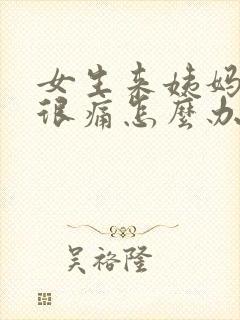 女生来姨妈
很痛怎麽办
吴裕隆